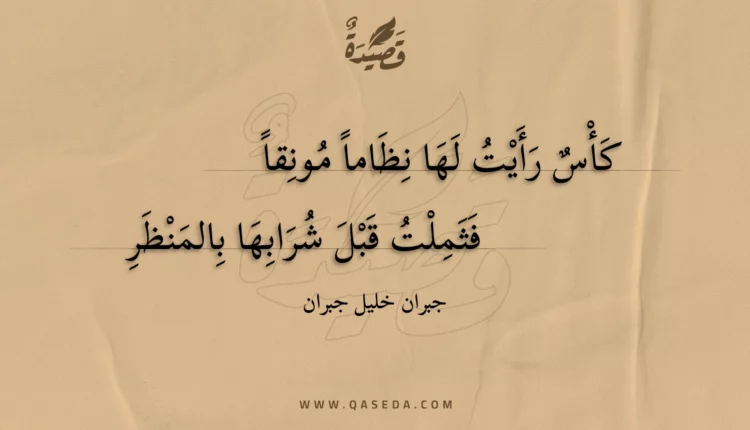 قَصِيدَةٌ
كَأْسٌ رَأَيْتُ لَهَا نِظَاماً مُونِقاً
فَثَمِلْتُ قَبْلَ شُرَابِهَا بِالمَنْظَرِ
جبران خليل جبران
WWW.QASEDA.COM